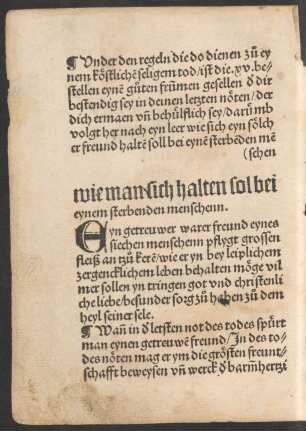 ¶ Vnder den regeln die do dienen zů ey
nem kőstlichē seligem tod/ist die .xv. be-
stellen eynē gůten frūmen gesellen ꝺ̄ dir
bestendig sey in deinen letzten nőten/der
dich ermaen vn̄ behülflich sey/darūmb
volgt her nach eyn leer wie sich eyn sőlch
er freund haltē soll bei eynē sterbēden mē
(schen
wie man sich halten sol bei
eynem sterbenden menschenn.
Eyn getreuwer warer freund eynes
siechen menschenn pflygt grossen
fleiß an tzů kerē/wie er yn bey leiplichem
zergencklichem leben behalten mőge vil
mer sollen yn tringen got vnd christenli
che liebe/besunder sorg zů haben zů dem
heyl seiner sele.
¶ Wan̄ in ꝺ̄ letsten not des todes spürt
man eynen getreuwē freund/In des to-
des nőten mag er ym die grősten freunt-
schafft beweysen vn̄ werck ꝺ̄ barm̄hertzi